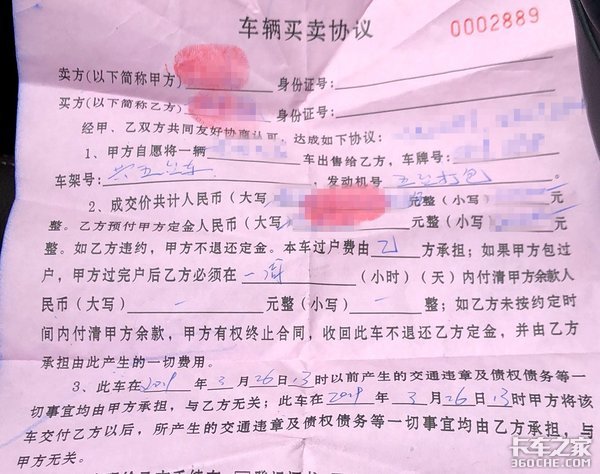 车辆买卖协议
0002889
卖方(以下简称甲方) 身份证号:
买方(以下简称乙方) 身份证号:
经甲、乙双方共同友好协商认可，达成如下协议:
1、甲方自愿将一辆 车出售给乙方，车牌号:
车架号: ，发动机号
2、成交价共计人民币(大写 元整(小写) 元
整。乙方预付甲方定金人民币(大写 元整(小写) 元
整。如乙方违约，甲方不退还定金。本车过户费由 乙 方承担；如果甲方包过
户，甲方过完户后乙方必须在 (小时)(天)内付清甲方余款人
民币(大写) 一 元整(小写) 一 整；如乙方未按约定时
间内付清甲方余款，甲方有权终止合同，收回此车不退还乙方定金，并由乙方
承担由此产生的一切费用。
3、此车在2019 年 3 月 26 日 13 时以前产生的交通违章及债权债务等一
切事宜均由甲方承担，与乙方无关；此车在 2019 年 3 月 26 日 13 时甲方将该
车交付乙方以后，所产生的交通违章及债权债务等一切事宜均由乙方承担，与
甲方无关。
卡车之家
360che.com